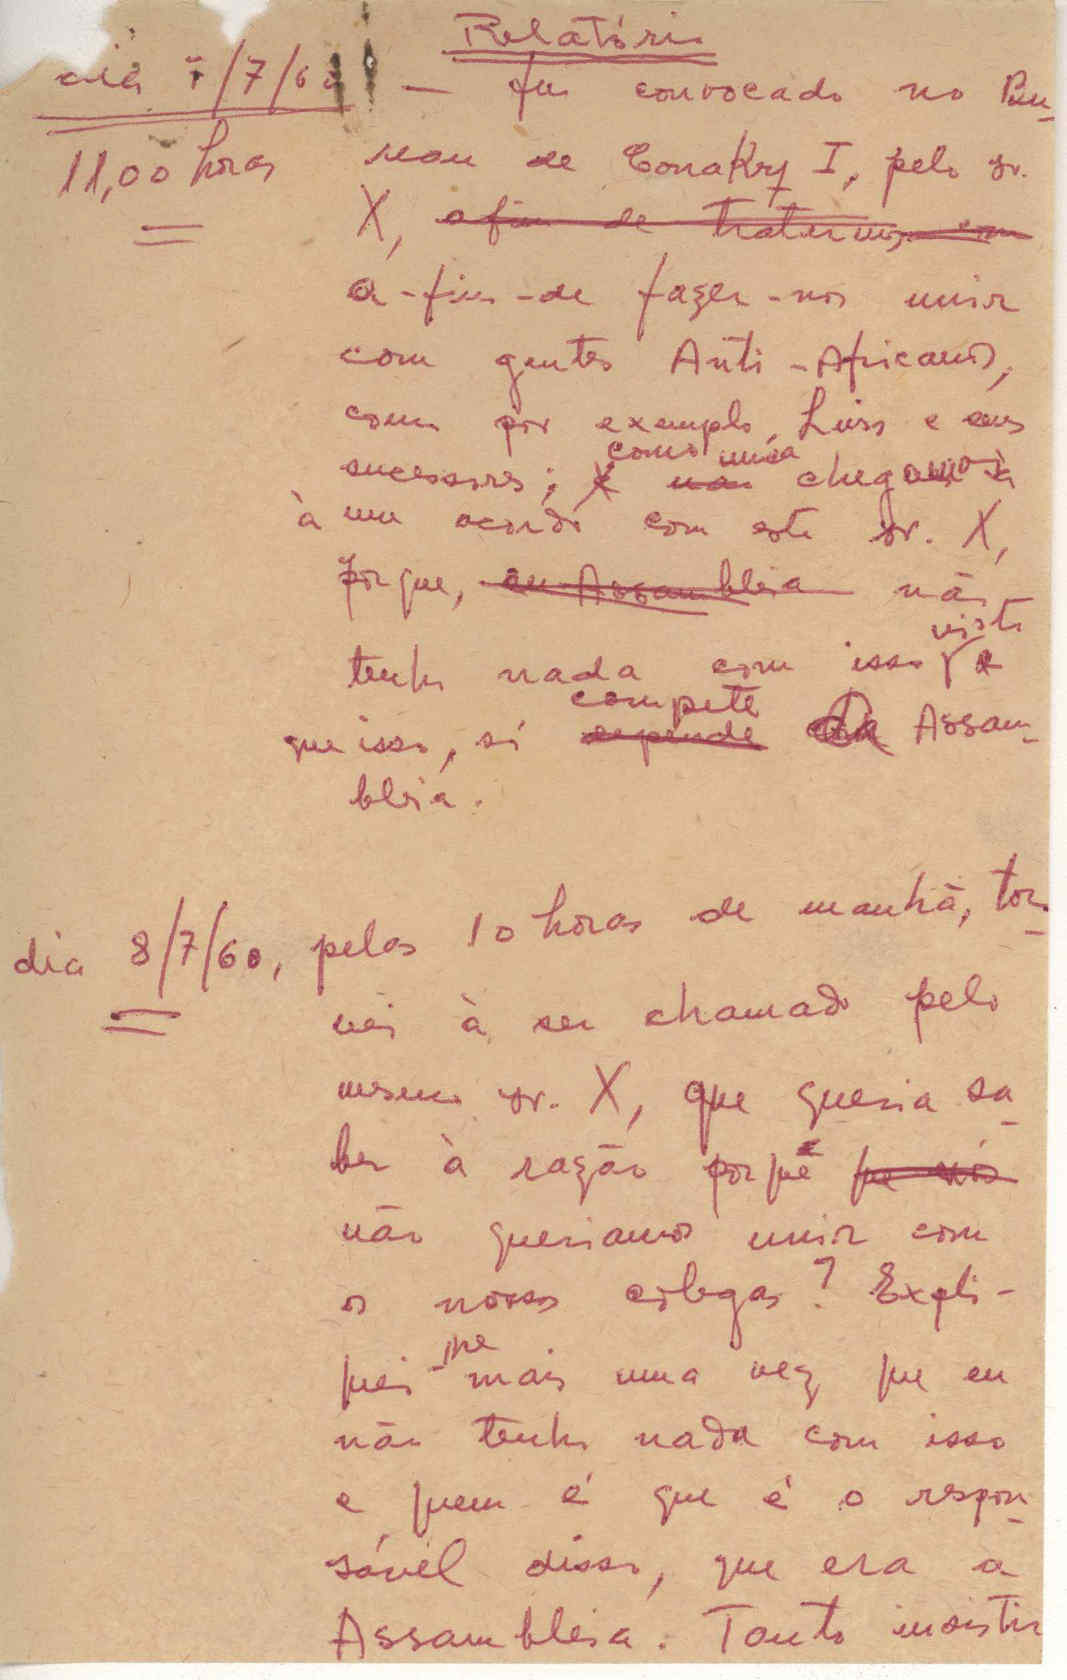 Relatório
dia 7/7/60 — fui convocado no Bu-
11,00 horas reau de Conakry I, pelo sr.
X, ~~afim de tratarmos com~~
a-fim-de fazer-nos unir
com gentes Anti-Africanos,
como por exemplo, Luis e seus
sucessores; como nunca chegamos
à um acordo com este sr. X,
porque, ~~a Assembleia~~ não
tenho nada com isso visto
que isso, só compete ~~depende~~ da Assam-
bleia.
dia 8/7/60, pelas 10 horas de manhã, tor-
nei à ser chamado pelo
mesmo sr. X, que queria sa-
ber à razão porquê ~~que nós~~
não queriamos unir com
os nossos colegas? Expli-
quei-me mais uma vez que eu
não tenho nada com isso
e quem é que é o respon-
sável disso, que era a
Assambleia. Tanto insistir